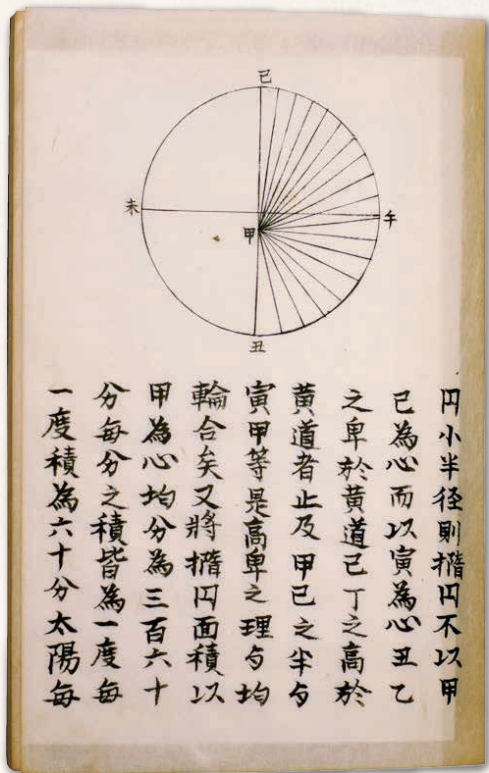 己
未
午
甲
丑
円小半径則撱円不以甲
己為心而以寅為心丑乙
之卑於黄道己丁之高於
黄道者止及甲己之半与
寅甲等是高卑之理与均
輪合矣又將撱円面積以
甲為心均分為三百六十
分每分之積皆為一度每
一度積為六十分太陽每